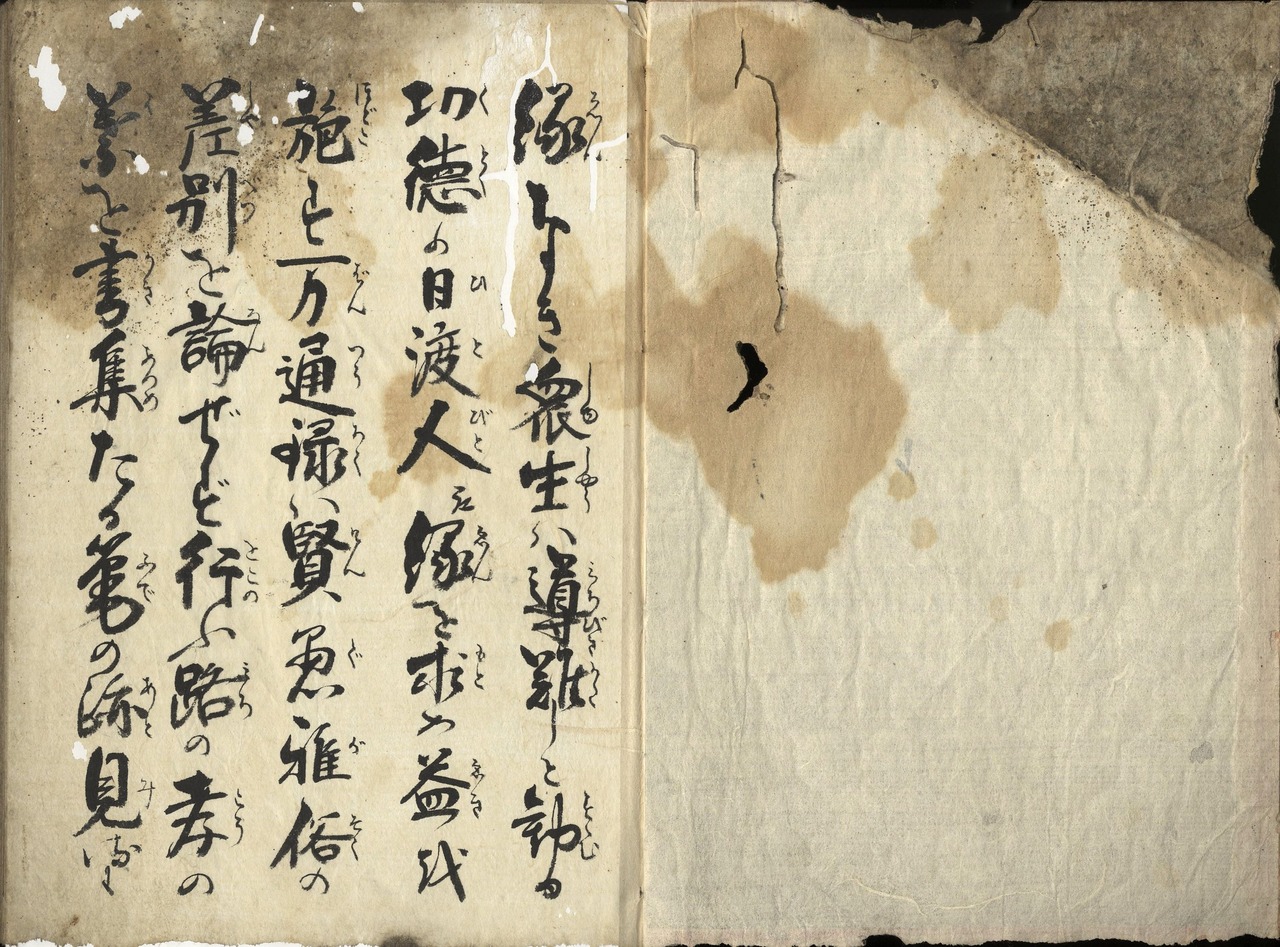 縁なき衆生ハ導難しと勧る
功徳の日渡人に縁を求め益を
施す万通禄ハ賢愚雅俗の
差別を論ぜど行ふ路の孝の
葉を書集たる筆の跡見